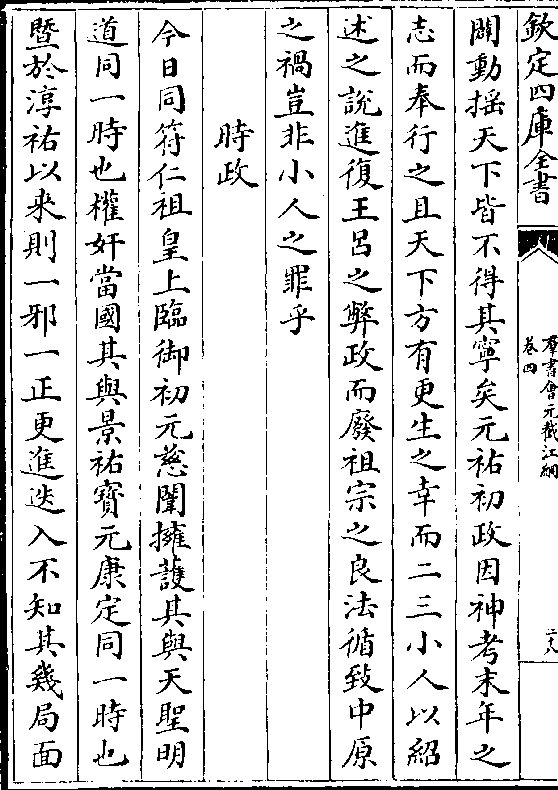 欽定四庫全書
羣書會元截江網
卷四
二八
闢動揺天下皆不得其寧矣元祐初政因神考末年之
志而奉行之且天下方有更生之幸而二三小人以紹
述之說進復王呂之弊政而廢祖宗之良法循致中原
之禍豈非小人之罪乎
時政
今日同符仁祖皇上臨御初元慈闈擁䕶其與天聖明
道同一時也權奸當國其與景祐寳元康定同一時也
暨於淳祐以來則一邪一正更進迭入不知其幾局面